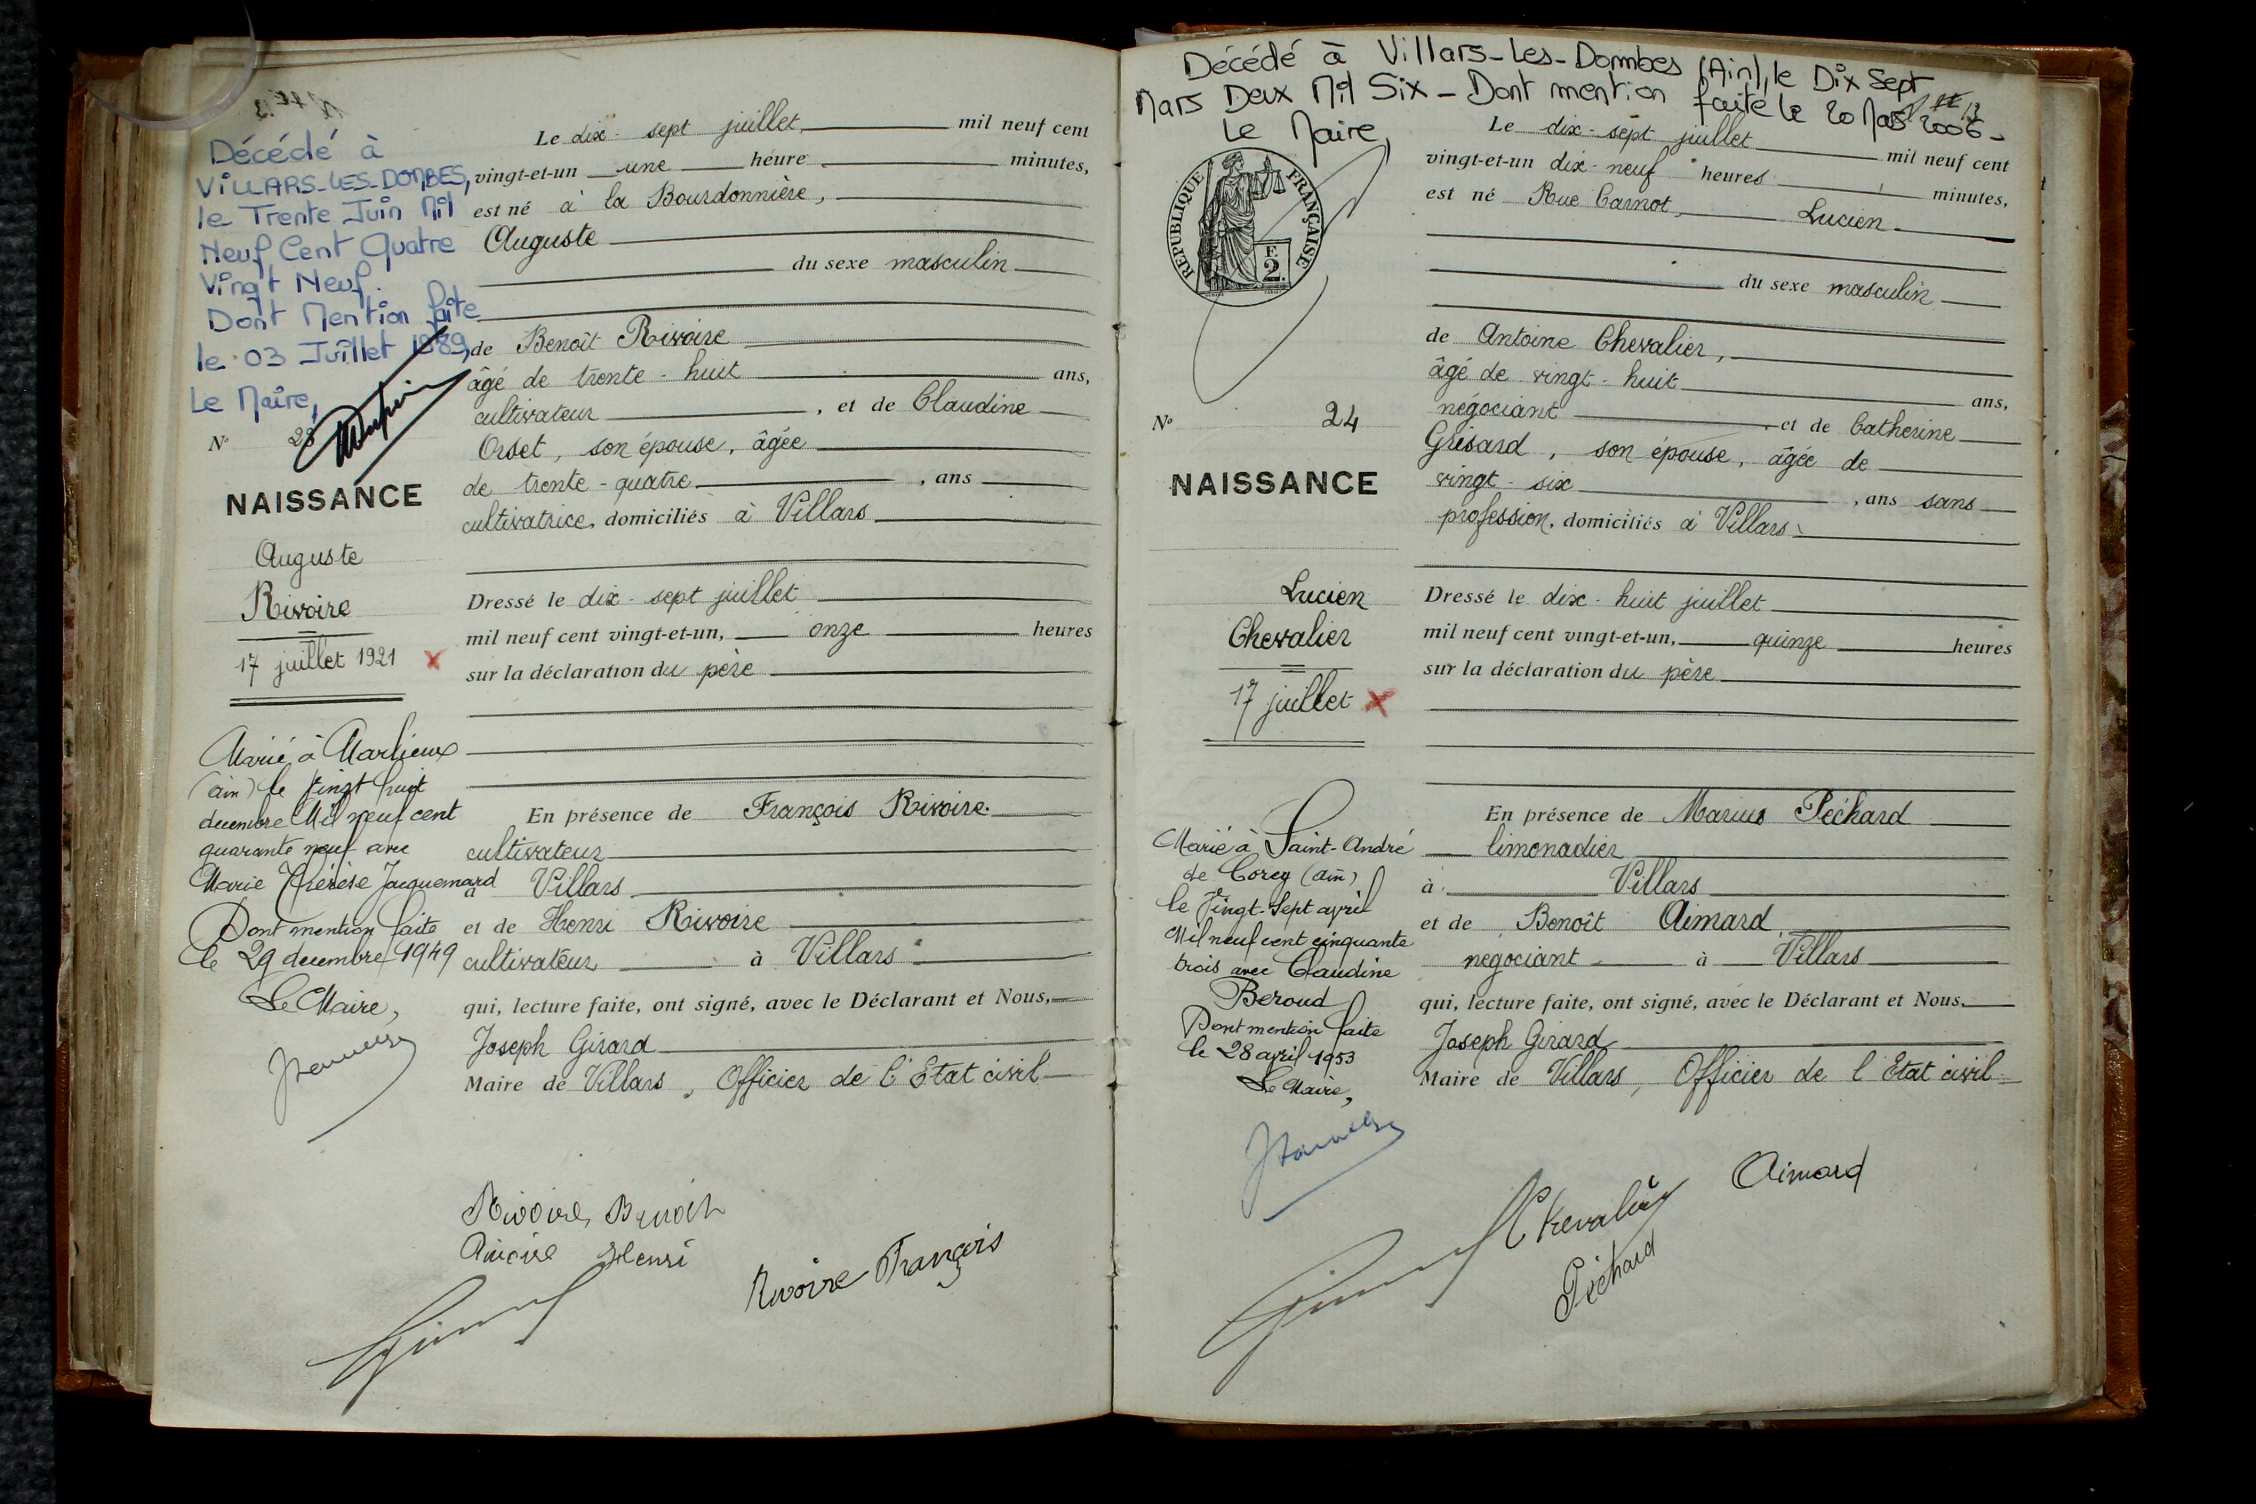 Décédé à
VILLARS-LES-DOMBES,
le Trente Juin Mil
Neuf Cent Quatre
Vingt Neuf.
Dont Mention faite
le 03 Juillet 1989,
Le Maire,
N° 23
NAISSANCE
Auguste
Rivoire
17 juillet 1921
Marié à Marlieux
(ain) le vingt huit
decembre Mil neuf cent
quarante neuf avec
Marie Thérèse Jacquemard
Dont mention faite
le 29 decembre 1949
Le Maire,
Le dix-sept juillet mil neuf cent
vingt-et-un une heure minutes,
est né à la Bourdonnière,
Auguste
du sexe masculin
de Benoît Rivoire
âgé de trente-huit ans,
cultivateur, et de Claudine
Orset, son épouse, âgée
de trente-quatre, ans
cultivatrice, domiciliés à Villars
Dressé le dix-sept juillet
mil neuf cent vingt-et-un, onze heures
sur la déclaration du père
En présence de François Rivoire
cultivateur
à Villars
et de Henri Rivoire
cultivateur à Villars
qui, lecture faite, ont signé, avec le Déclarant et Nous,
Joseph Girard
Maire de Villars, Officier de l'Etat civil
Rivoire Benoit
Rivoire Henri
Rivoire François
Décédé à Villars-Les-Dombes (Ain), le Dix Sept
Mars Deux Mil Six - Dont mention faite le 20 Mars 2006 -
Le Maire,
REPUBLIQUE FRANÇAISE
F.
2.
N° 24
NAISSANCE
Lucien
Chevalier
17 juillet
Marié à Saint-André
de Corcy (ain)
le vingt-sept avril
Mil neuf cent cinquante
trois avec Claudine
Beroud
Dont mention faite
le 28 avril 1953
Le Maire,
Le dix-sept juillet mil neuf cent
vingt-et-un dix-neuf heures minutes,
est né Rue Carnot, Lucien
du sexe masculin
de Antoine Chevalier,
âgé de vingt-huit ans,
négociant, et de Catherine
Grisard, son épouse, âgée de
vingt-six, ans sans
profession, domiciliés à Villars
Dressé le dix-huit juillet
mil neuf cent vingt-et-un, quinze heures
sur la déclaration du père
En présence de Marius Péchard
limonadier
à Villars
et de Benoît Aimard
négociant à Villars
qui, lecture faite, ont signé, avec le Déclarant et Nous,
Joseph Girard
Maire de Villars, Officier de l'Etat civil
Aimard
Chevalier
Péchard